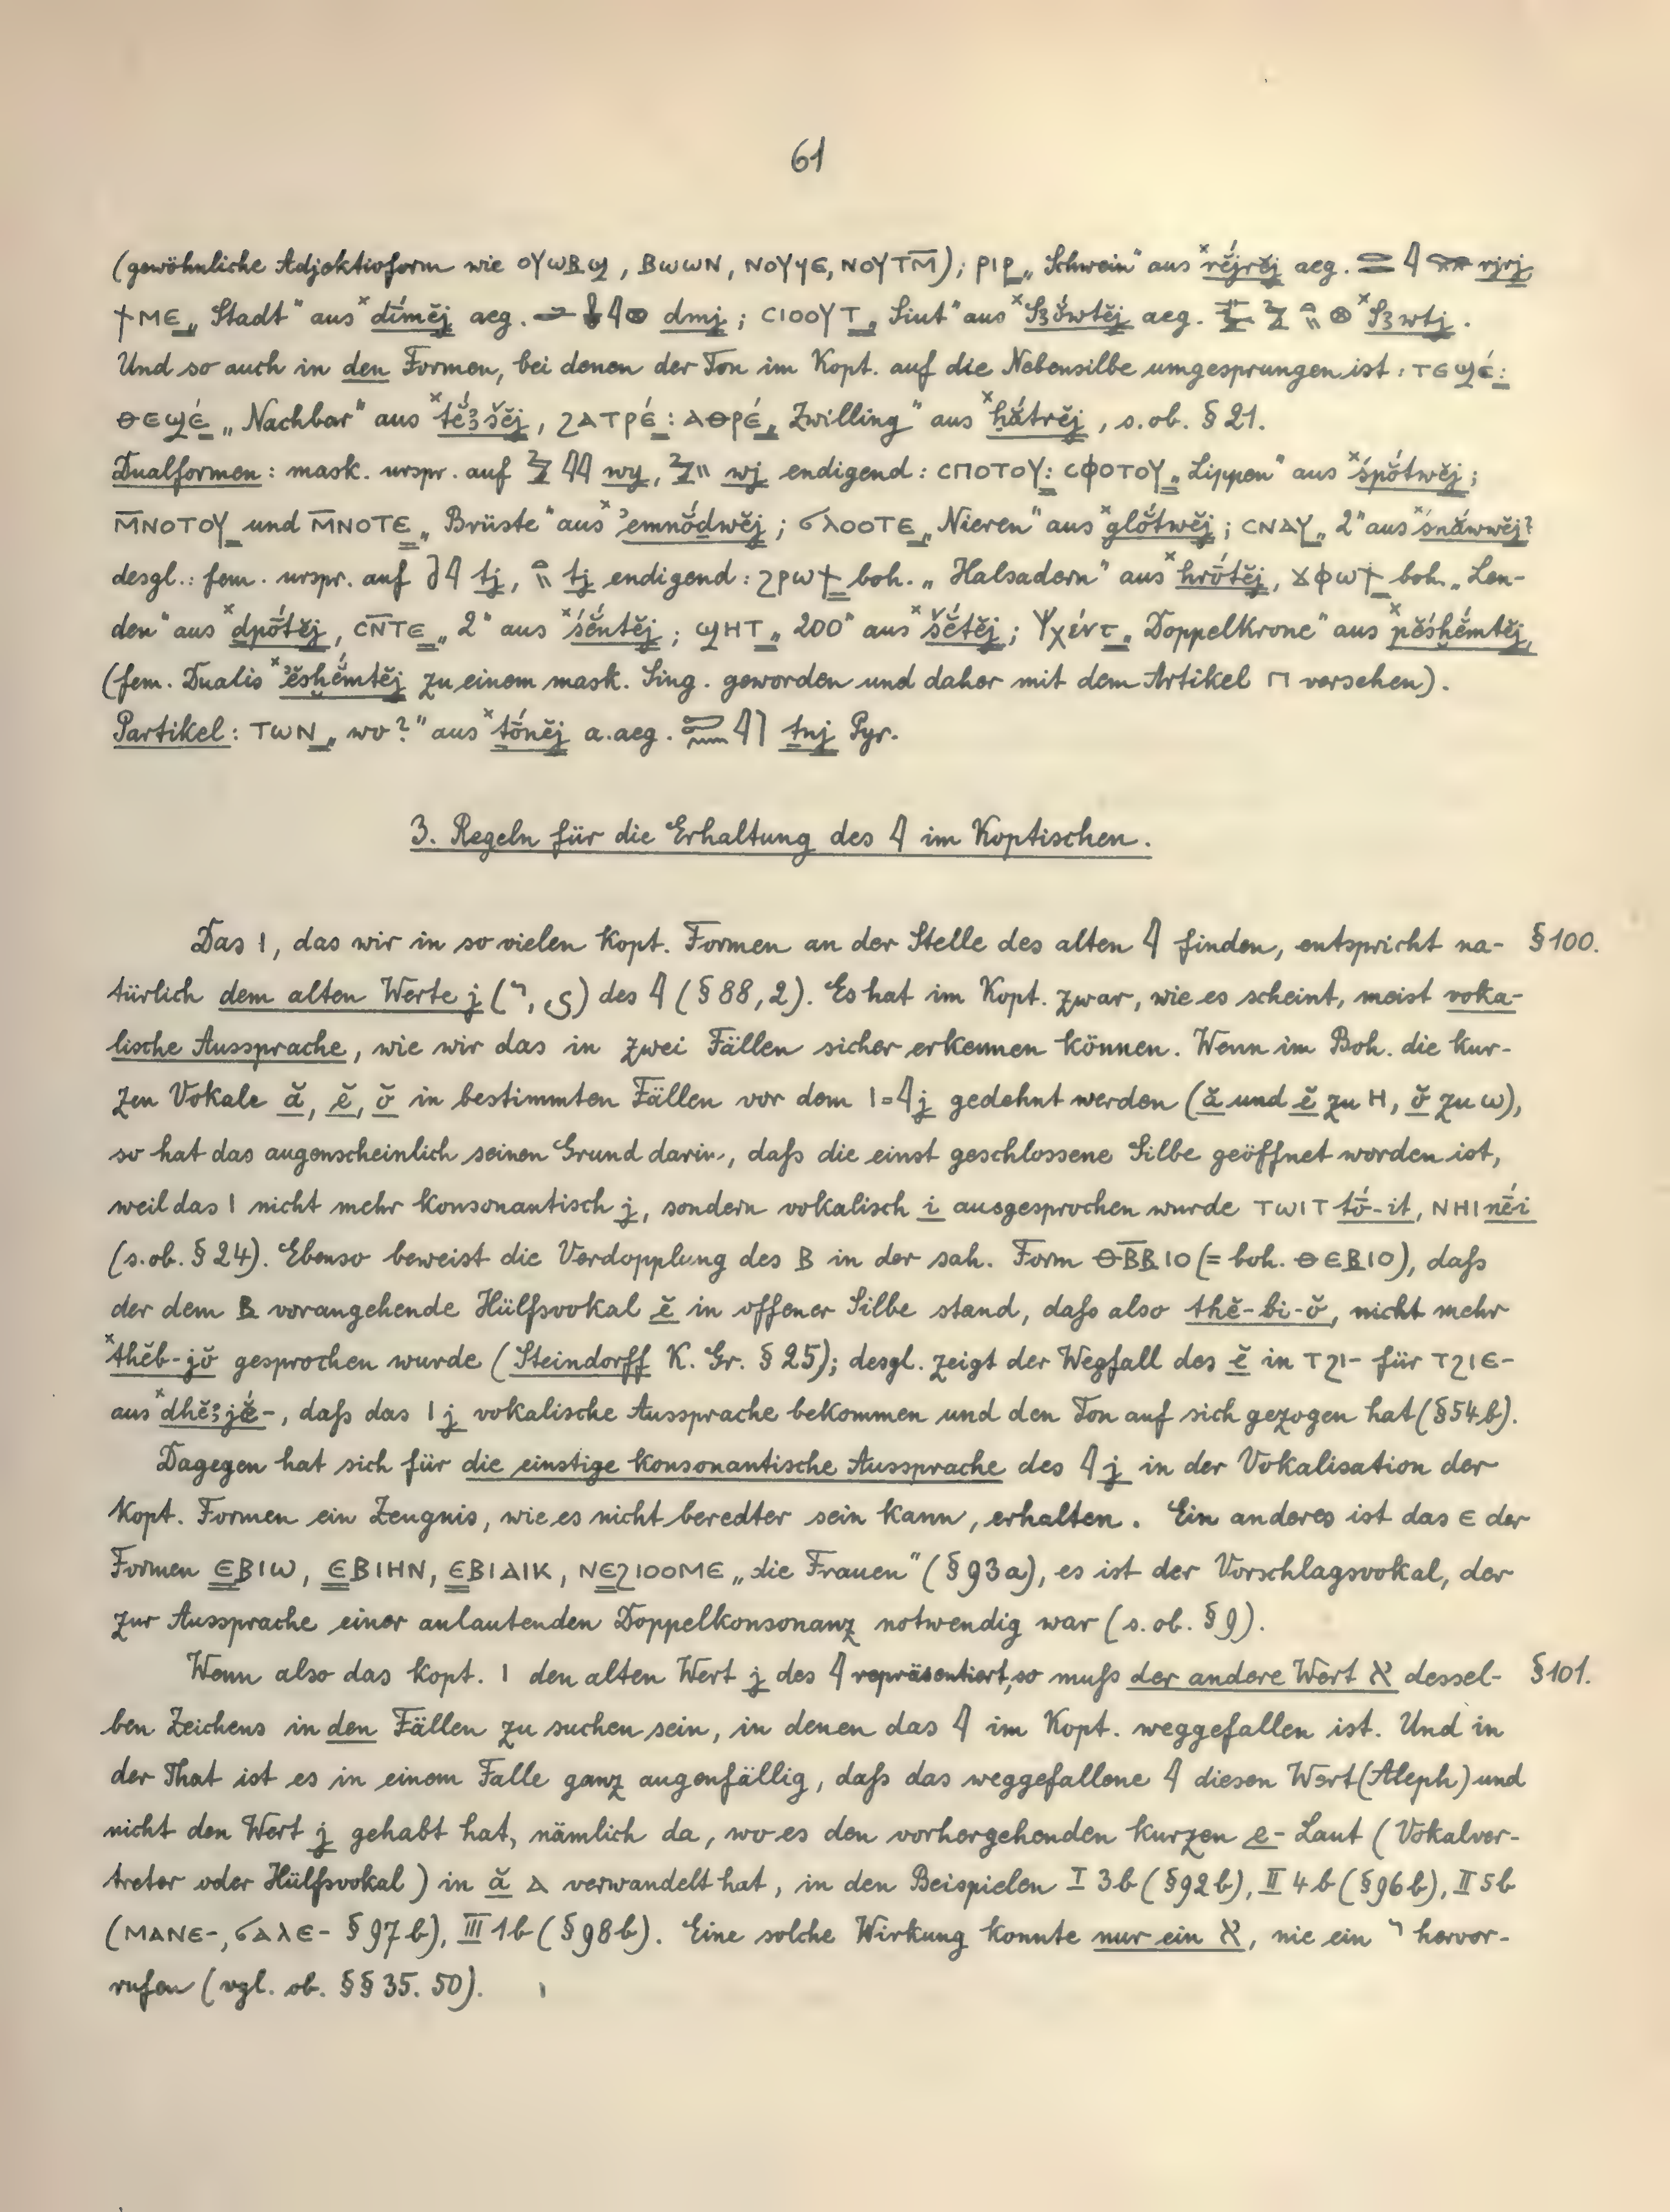 61
(gewöhnliche Adjektivform wie ⲟⲩⲱⲃϣ, ⲃⲱⲱⲛ, ⲛⲟⲩϥⲉ, ⲛⲟⲩⲧⲙ̄); ⲣⲓⲣ „Schwein“ aus ˣrḗjrĕj aeg. 𓇋 rjrj,
ϯⲙⲉ „Stadt“ aus ˣdī́mĕj aeg. 𓇋𓊖 dmj; ⲥⲓⲟⲟⲩⲧ „Siut“ aus ˣS3ŏ́wtĕj aeg. 𓊖 ˣS3wtj.
Und so auch in den Formen, bei denen der Ton im Kopt. auf die Nebensilbe umgesprungen ist: ⲧⲉϣⲉ́:
ⲑⲉϣⲉ́ „Nachbar“ aus ˣtĕ́3šĕj, ϩⲁⲧⲣⲉ́: ⲁⲑⲣⲉ́ „Zwilling“ aus ˣḥắtrĕj, s. ob. § 21.
Dualformen: mask. urspr. auf 𓇋𓇋 wy, wj endigend: ⲥⲡⲟⲧⲟⲩ: ⲥⲫⲟⲧⲟⲩ „Lippen“ aus ˣśpŏ́twĕj;
ⲙ̄ⲛⲟⲧⲟⲩ und ⲙ̄ⲛⲟⲧⲉ „Brüste“ aus ˣʾemnŏ́dwĕj; ϭⲗⲟⲟⲧⲉ „Nieren“ aus ˣglŏ́twĕj; ⲥⲛⲁⲩ „2“ aus ˣśnắwwĕj?
desgl.: fem. urspr. auf 𓇋 tj, tj endigend: ϩⲣⲱϯ boh. „Halsadern“ aus ˣhrṓtĕj, ϫⲫⲱϯ boh. „Len-
den“ aus ˣdpṓtĕj, ⲥⲛ̄ⲧⲉ „2“ aus ˣśĕ́ntĕj; ϣⲏⲧ „200“ aus ˣšḗtĕj; Ψχέντ „Doppelkrone“ aus ˣpĕsḫĕ́mtĕj,
(fem. Dualis ˣʾĕsḫĕ́mtĕj zu einem mask. Sing. geworden und daher mit dem Artikel ⲡ versehen).
Partikel: ⲧⲱⲛ „wo?“ aus ˣtṓnĕj a. aeg. 𓇋 tnj Pyr.
3. Regeln für die Erhaltung des 𓇋 im Koptischen.
Das ⲓ, das wir in so vielen kopt. Formen an der Stelle des alten 𓇋 finden, entspricht na- § 100.
türlich dem alten Werte j (י, ي) des 𓇋 (§ 88, 2). Es hat im Kopt. zwar, wie es scheint, meist voka-
lische Aussprache, wie wir das in zwei Fällen sicher erkennen können. Wenn im Boh. die kur-
zen Vokale ă, ĕ, ŏ in bestimmten Fällen vor dem ⲓ=𓇋 j gedehnt werden (ă und ĕ zu ⲏ, ŏ zu ⲱ),
so hat das augenscheinlich seinen Grund darin, daſs die einst geschlossene Silbe geöffnet worden ist,
weil das ⲓ nicht mehr konsonantisch j, sondern vokalisch i ausgesprochen wurde ⲧⲱⲓⲧ tṓ-it, ⲛⲏⲓ nḗi
(s. ob. § 24). Ebenso beweist die Verdopplung des ⲃ in der sah. Form ⲑⲃ̄ⲃⲓⲟ (= boh. ⲑⲉⲃⲓⲟ), daſs
der dem ⲃ vorangehende Hülfsvokal ĕ in offener Silbe stand, daſs also thĕ-bi-ŏ, nicht mehr
ˣthĕb-jŏ gesprochen wurde (Steindorff K. Gr. § 25); desgl. zeigt der Wegfall des ĕ in ⲧϩⲓ- für ⲧϩⲓⲉ-
aus ˣdhĕ3jĕ-, daſs das ⲓ j vokalische Aussprache bekommen und den Ton auf sich gezogen hat (§ 54 b).
Dagegen hat sich für die einstige konsonantische Aussprache des 𓇋 j in der Vokalisation der
kopt. Formen ein Zeugnis, wie es nicht beredter sein kann, erhalten. Ein anderes ist das ⲉ der
Formen ⲉⲃⲓⲱ, ⲉⲃⲓⲏⲛ, ⲉⲃⲓⲁⲓⲕ, ⲛⲉϩⲓⲟⲟⲙⲉ „die Frauen“ (§ 93 a), es ist der Vorschlagsvokal, der
zur Aussprache einer anlautenden Doppelkonsonanz notwendig war (s. ob. § 9).
Wenn also das kopt. ⲓ den alten Wert j des 𓇋 repräsentiert, so muſs der andere Wert א dessel- § 101.
ben Zeichens in den Fällen zu suchen sein, in denen das 𓇋 im Kopt. weggefallen ist. Und in
der That ist es in einem Falle ganz augenfällig, daſs das weggefallene 𓇋 diesen Wert (Aleph) und
nicht den Wert j gehabt hat, nämlich da, wo es den vorhergehenden kurzen e-Laut (Vokalver-
treter oder Hülfsvokal) in ă ⲁ verwandelt hat, in den Beispielen I 3b (§ 92 b), II 4 b (§ 96 b), II 5b
(ⲙⲁⲛⲉ-, ϭⲁⲗⲉ- § 97 b), III 1b (§ 98 b). Eine solche Wirkung konnte nur ein א, nie ein י hervor-
rufen (vgl. ob. §§ 35. 50).